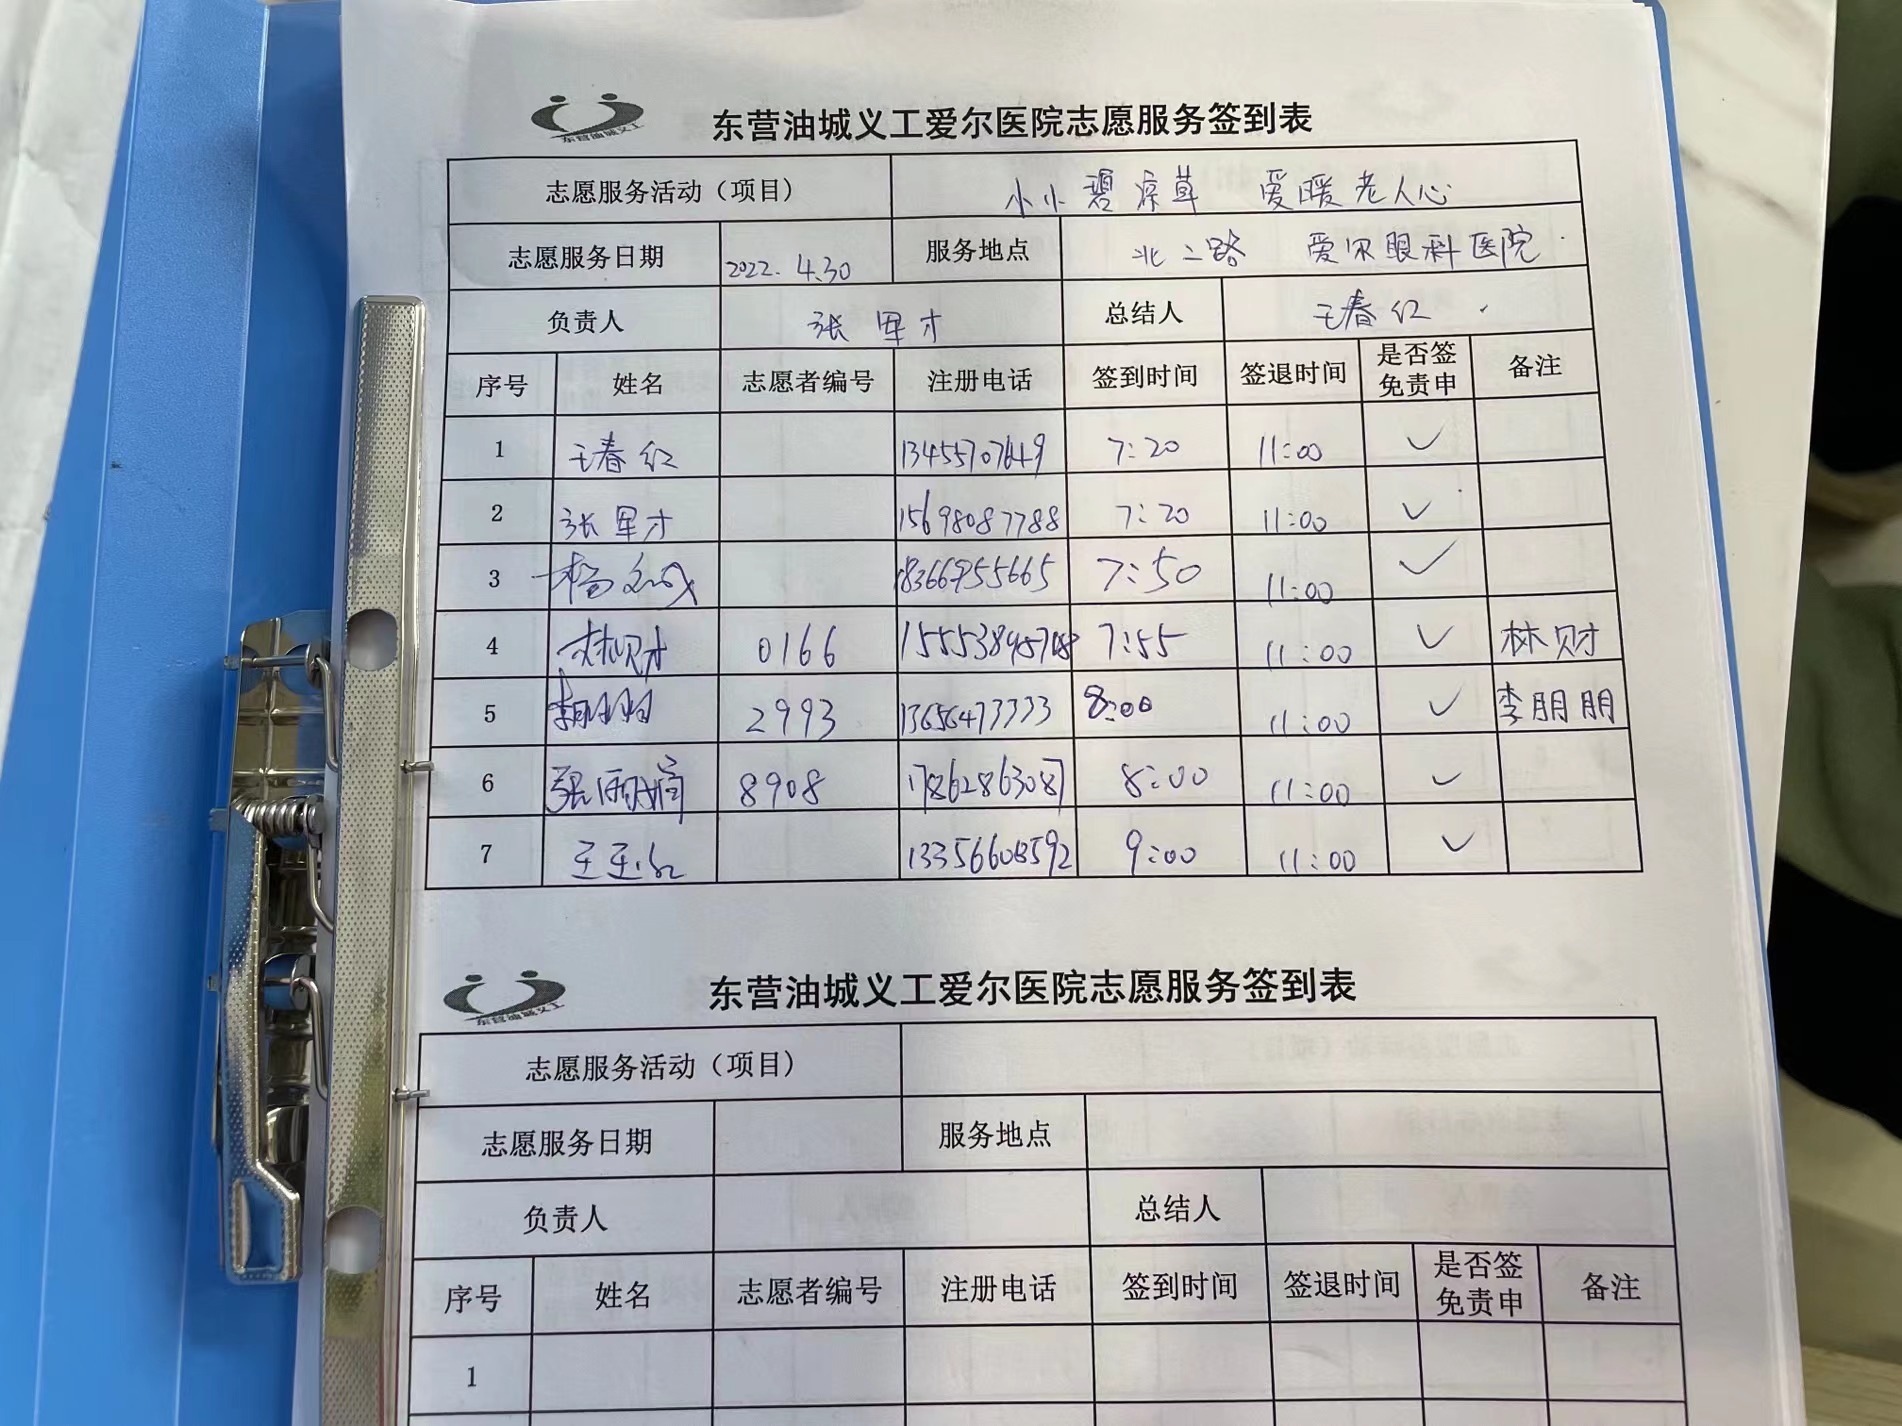 东营油城义工
东营油城义工爱尔医院志愿服务签到表
志愿服务活动（项目） 小小碧落草 爱暖老人心
志愿服务日期 2022.4.30 服务地点 北二路 爱尔眼科医院
负责人 张军才 总结人 王春红
序号 姓名 志愿者编号 注册电话 签到时间 签退时间 是否签免责申 备注
1 王春红 13455707649 7:20 11:00 ✓
2 张军才 15698087788 7:20 11:00 ✓
3 杨 18366955665 7:50 11:00 ✓
4 林财 0166 7:55 11:00 ✓ 林财
5 李朋朋 2993 13656473333 8:00 11:00 ✓ 李朋朋
6 张雨 8908 17862863087 8:00 11:00 ✓
7 王玉红 9:00 11:00 ✓
东营油城义工
东营油城义工爱尔医院志愿服务签到表
志愿服务活动（项目）
志愿服务日期 服务地点
负责人 总结人
序号 姓名 志愿者编号 注册电话 签到时间 签退时间 是否签免责申 备注
1